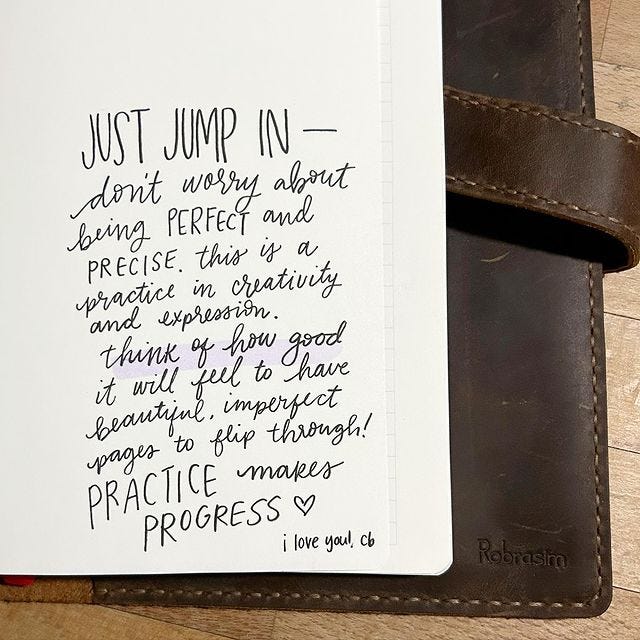 JUST JUMP IN —
don't worry about
being PERFECT and
PRECISE. this is a
practice in creativity
and expression.
think of how good
it will feel to have
beautiful, imperfect
pages to flip through!
PRACTICE makes
PROGRESS ♡
i love you!, cb
Robrasim